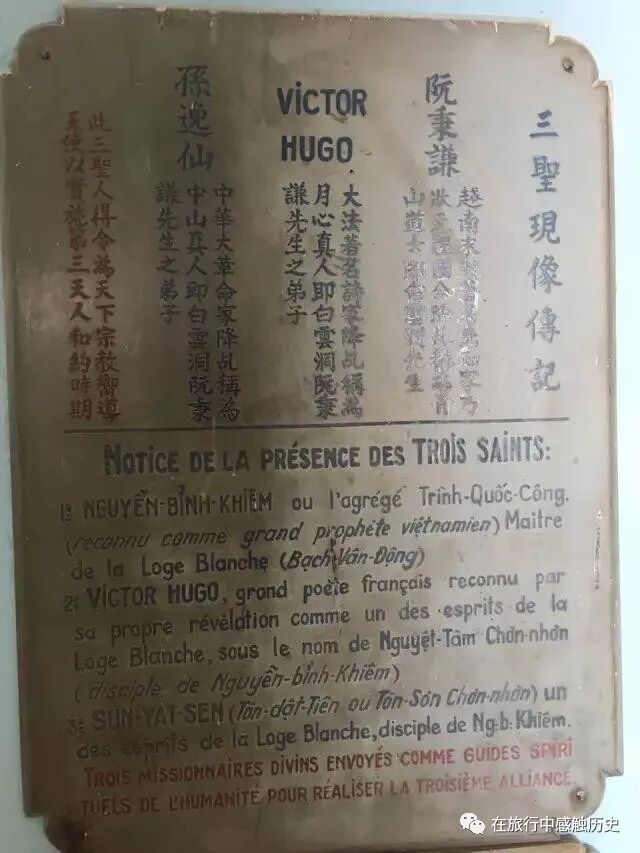 三聖現像傳記
阮秉謙
越南末朝著名先知家乃
狀元程國公降乩稱為青
山道士即白雲洞先生
VİCTOR
HUGO
大法著名詩家降乩稱為
月心真人即白雲洞阮秉
謙先生之弟子
孫逸仙
中華大革命家降乩稱為
中山真人即白雲洞阮秉
謙先生之弟子
此三聖人得令為天下宗教嚮導
天使以實施第三天人和約時期
NOTICE DE LA PRÉSENCE DES TROIS SAINTS:
1º: NGUYỄN-BỈNH-KHIÊM ou l'agrégé Trình-Quốc-Công.
(reconnu comme grand prophète viêtnamien) Maitre
de la Loge Blanche (Bạch-Vân-Động)
2º: VİCTOR HUGO, grand poète français reconnu par
sa propre révélation comme un des esprits de la
Loge Blanche, sous le nom de Nguyệt-Tâm Chơn-nhơn
(disciple de Nguyễn-bỉnh-Khiêm)
3º: SUN-YAT-SEN (Tôn-dật-Tiên ou Tôn-Sơn Chơn-nhơn) un
des esprits de la Loge Blanche, disciple de Ng.b.Khiêm.
TROIS MISSIONNAIRES DIVINS ENVOYÉS COMME GUIDES SPIRI
TUELS DE L'HUMANITÉ POUR RÉALISER LA TROISIÈME ALLIANCE.
在旅行中感触历史